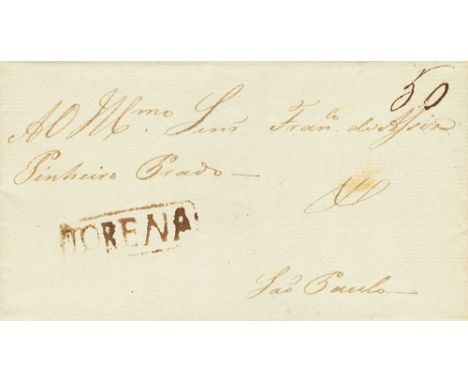 50
Ao Illmo. Senr. Franco. de Assis
Pinheiro Prado
LORENA
São Paulo